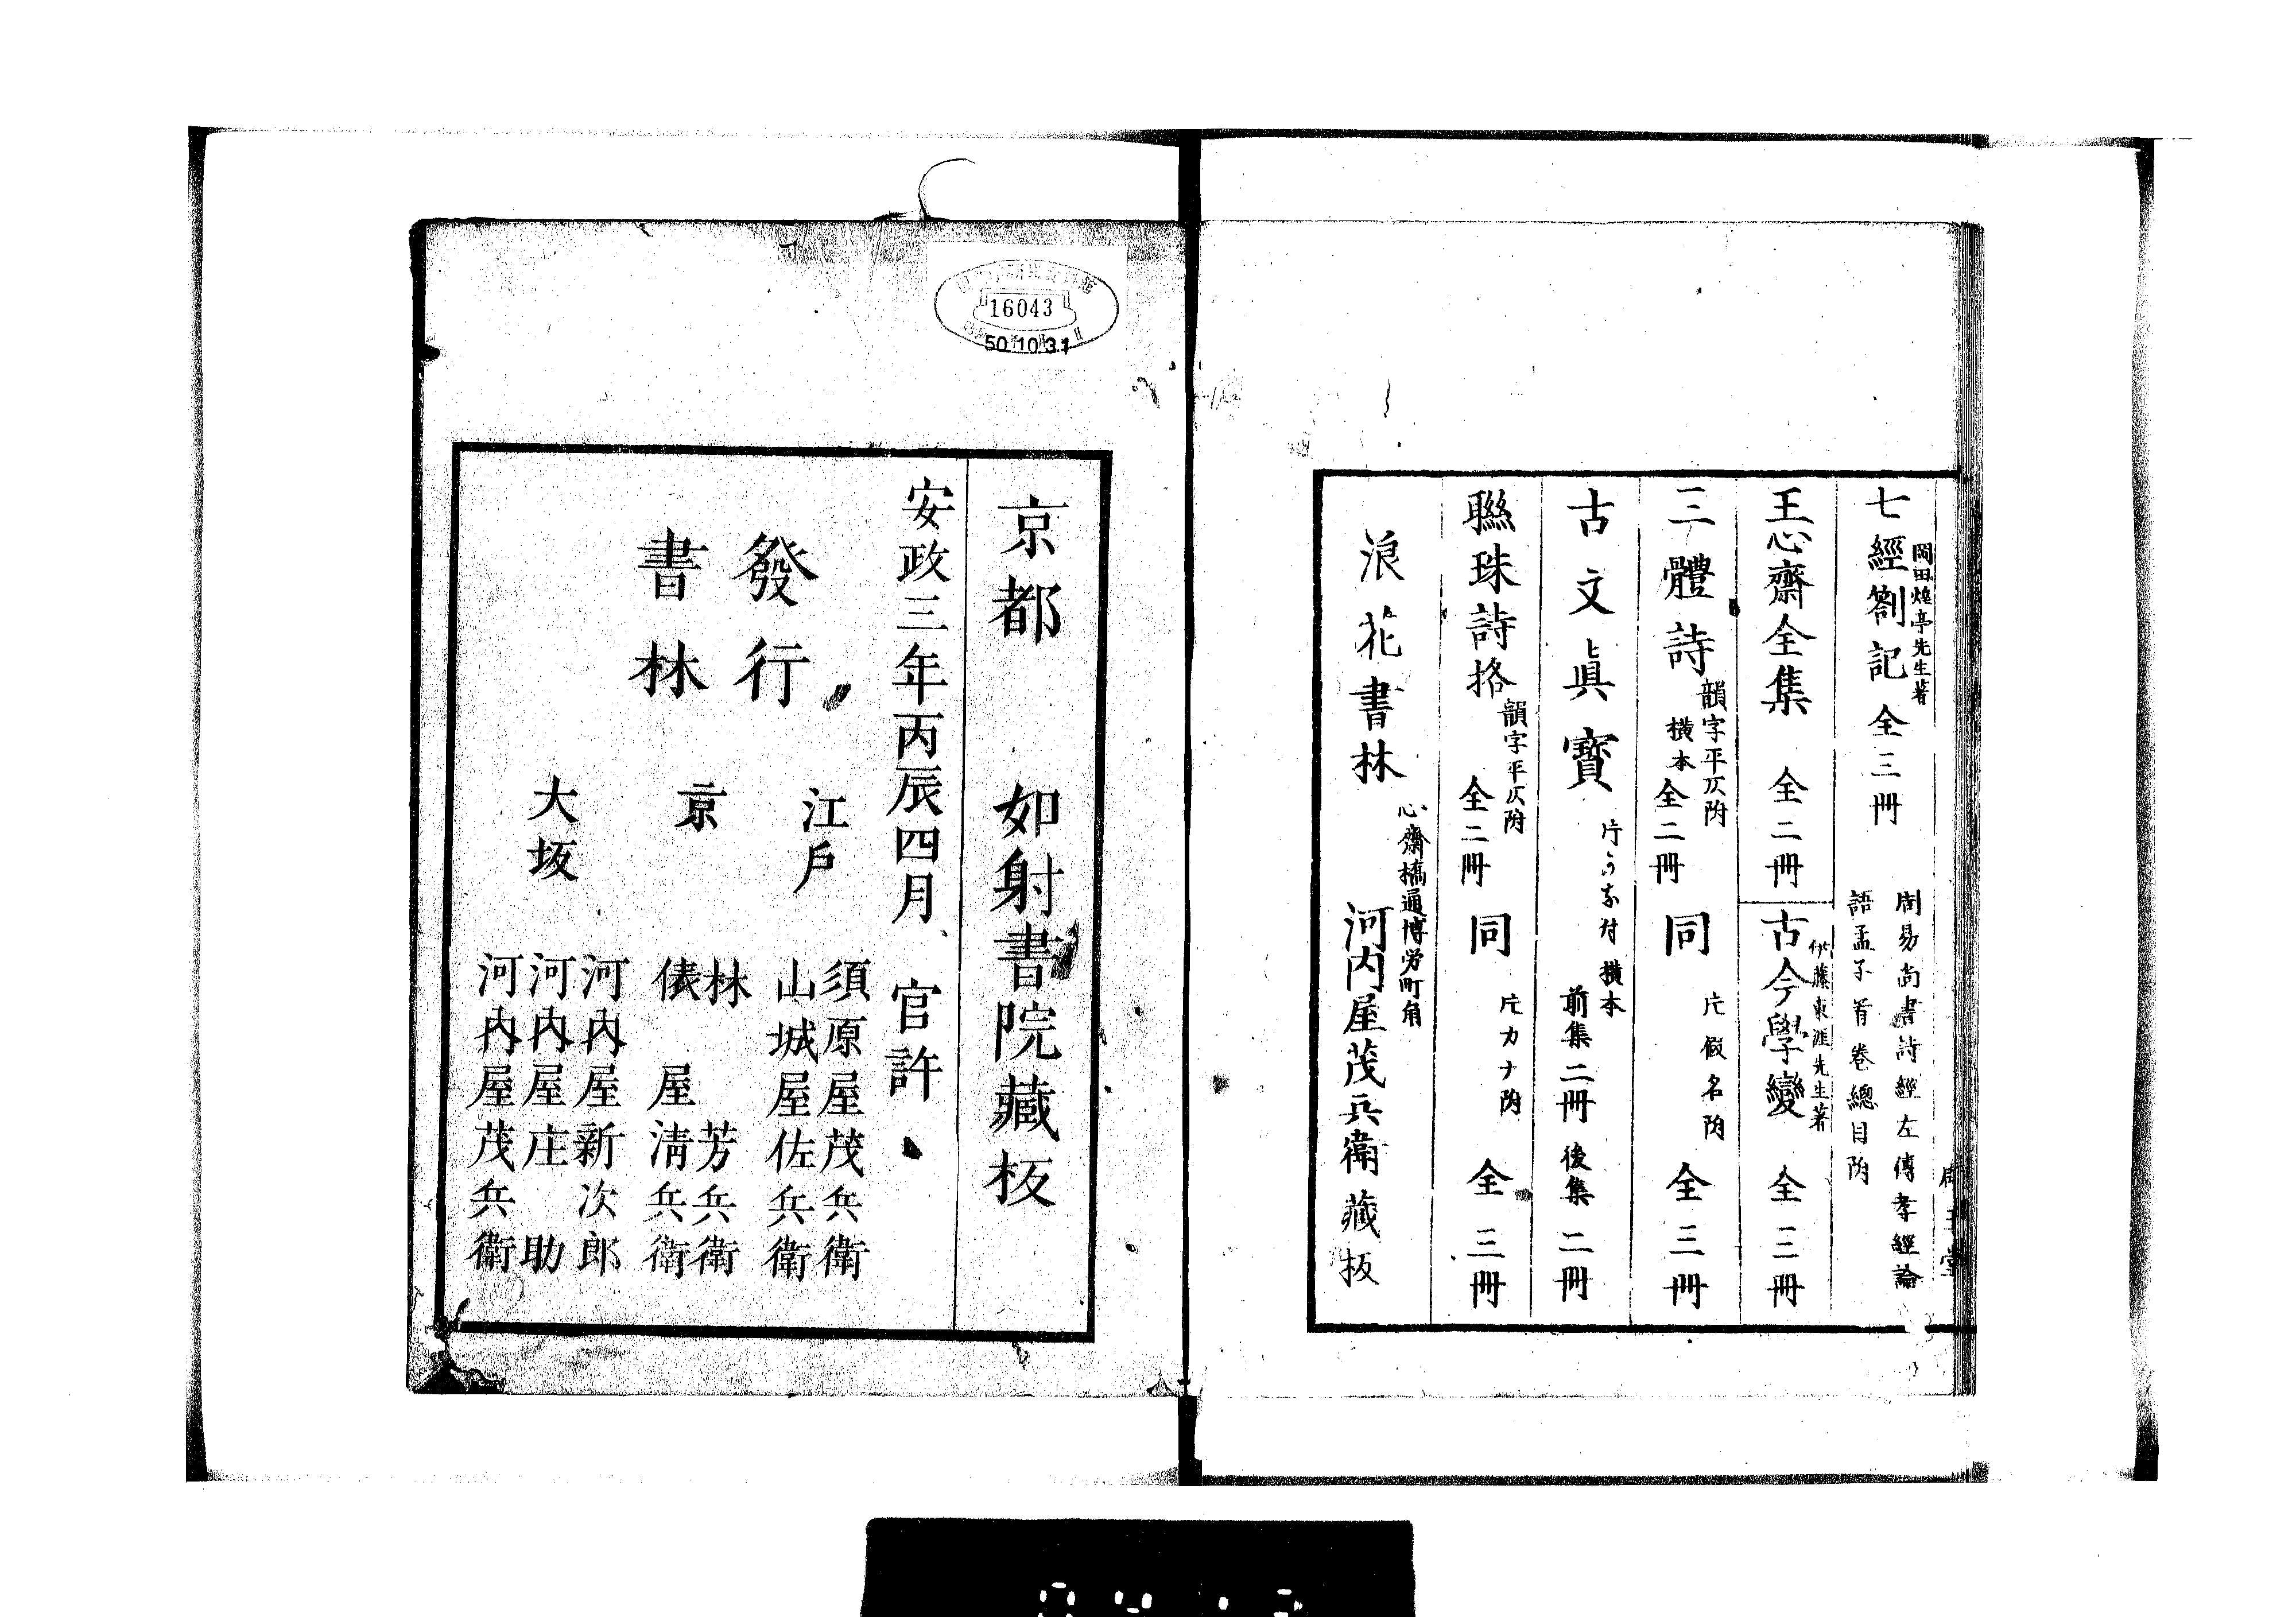 岡田煌亭先生著
七經劄記 全三冊
周易尚書詩經左傳孝經論
語孟子首卷總目附
王心齋全集 全二冊
伊藤東涯先生著
古今學變 全三冊
三體詩
韻字平仄附
横本
全二冊
同
片假名附
全三冊
古文眞寳
片かな付 横本
前集二冊 後集二冊
聯珠詩格
韻字平仄附
全二冊
同
片カナ附
全三冊
浪花書林
心齋橋通博労町角
河内屋茂兵衞藏板
京都 如射書院藏板
安政三年丙辰四月 官許
發行
書林
江戸
須原屋茂兵衞
山城屋佐兵衞
京
林 芳兵衞
俵屋清兵衞
大坂
河内屋新次郎
河内屋庄助
河内屋茂兵衞
16043
50.10.31